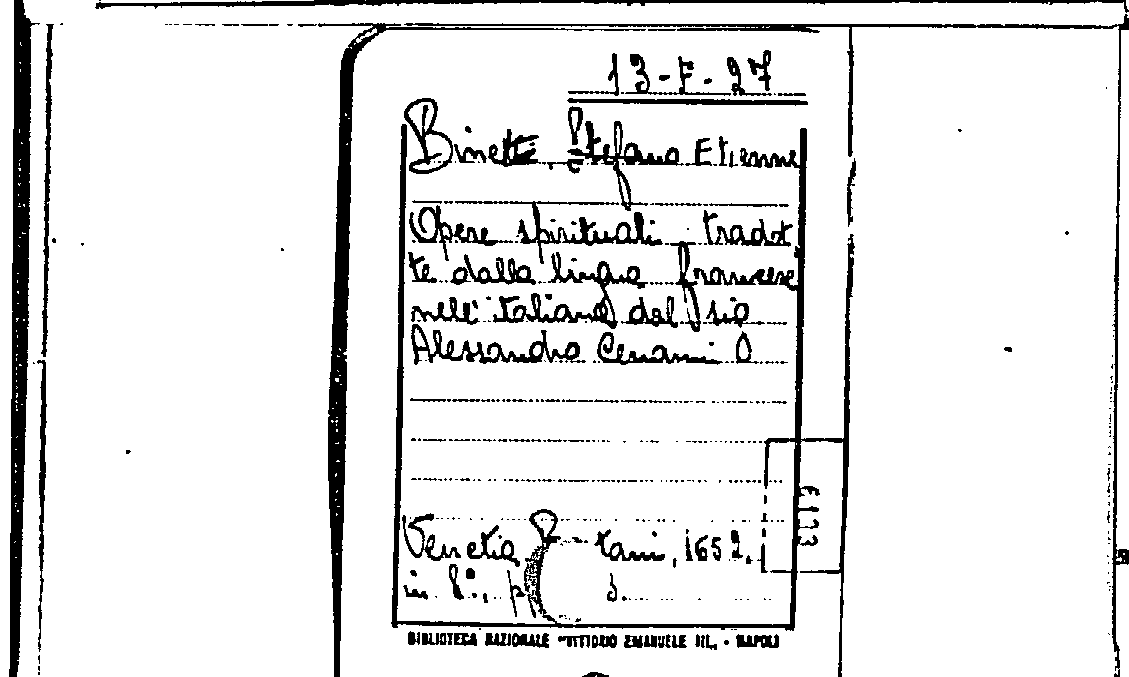 13-F-27
Binetti, Stefano Etienne
Opere spirituali tradot
te dalla lingua francese
nell'italiana dal sig
Alessandro Cenami
Venetia, tani, 1652.
in 8°., p
6133
BIBLIOTECA NAZIONALE "VITTORIO EMANUELE III„ - NAPOLI